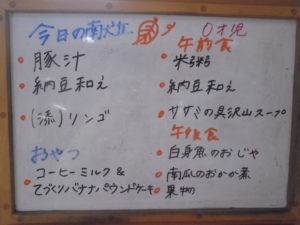 今日の献立
豚汁
納豆和え
(添)リンゴ
おやつ
コーヒーミルク&
てづくりバナナパウンドケーキ
0才児
午前食
米粥
納豆和え
ササミの具沢山スープ
午後食
白身魚のおじや
南瓜のおかか煮
果物